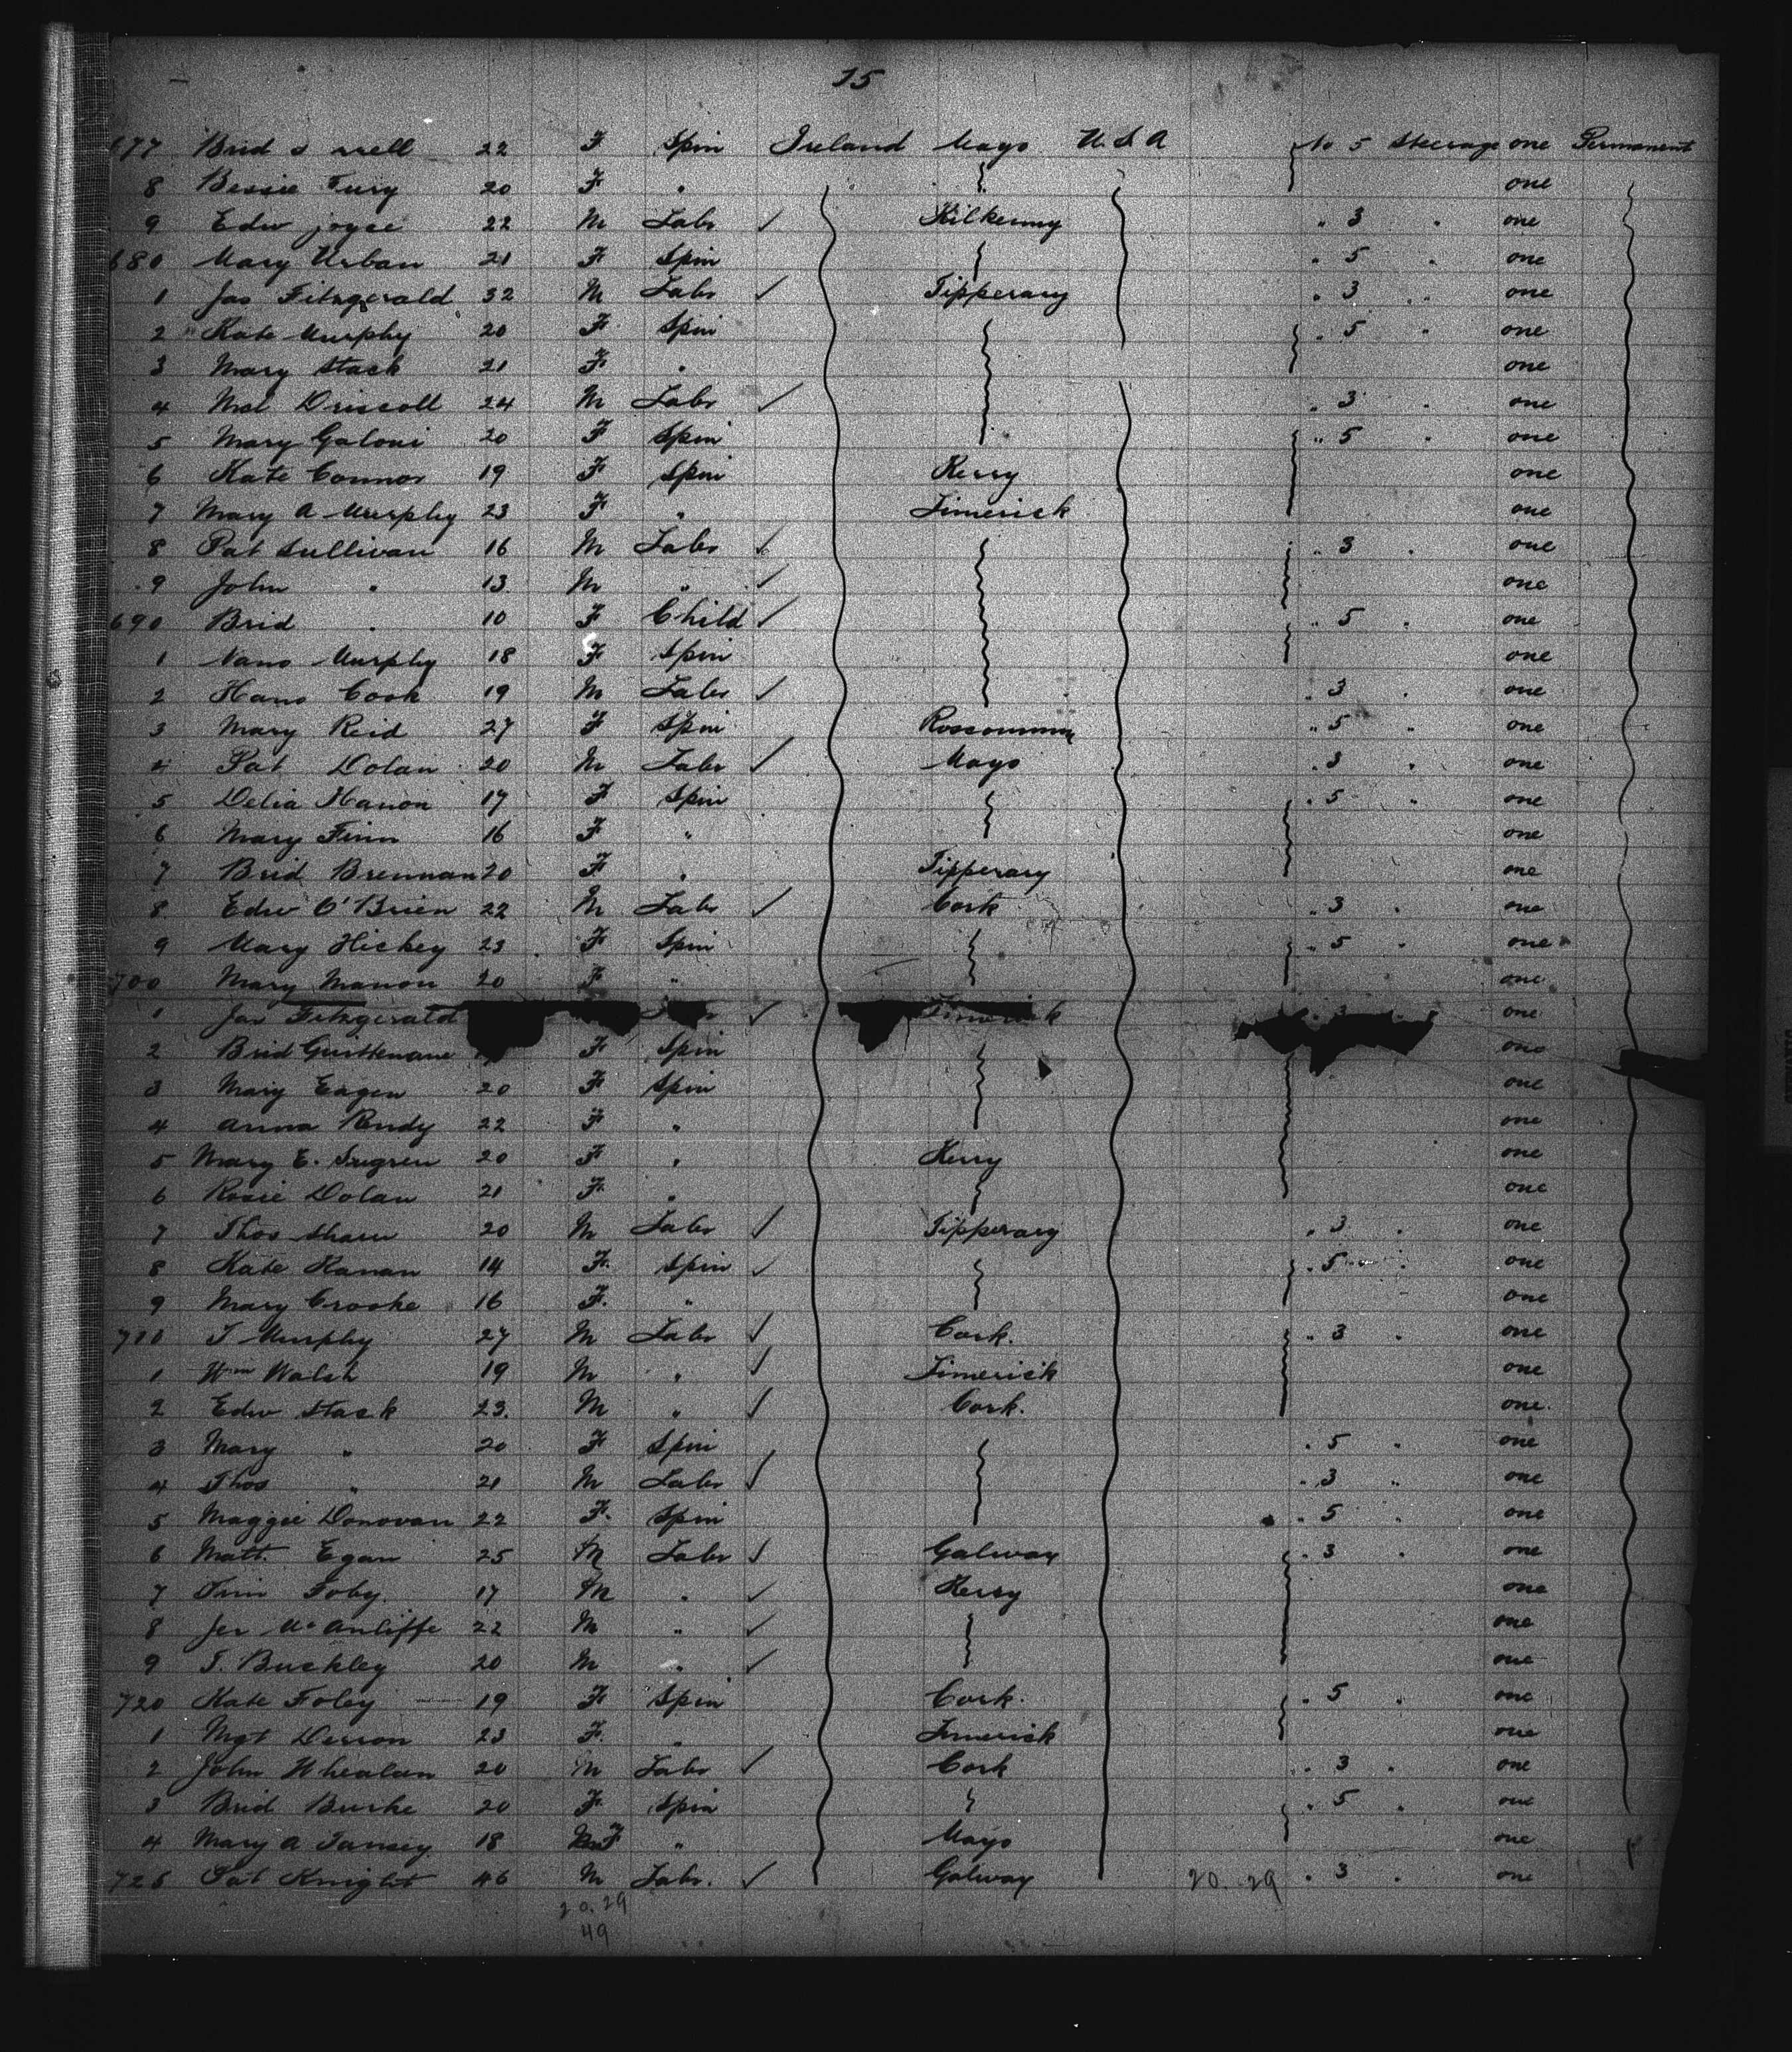 15
677 Brid 22 F Spin Ireland Mayo U.S.A No 5 Steerage one Permanent
8 Bessie Fury 20 F " one
9 Edw joyce 22 M Labr ✓ Kilkenny " 3 " one
680 Mary Urban 21 F Spin " 5 " one
1 Jas Fitzgerald 32 M Labr ✓ Tipperary " 3 " one
2 Kate Murphy 20 F Spin " 5 " one
3 Mary Stack 21 F " one
4 Driscoll 24 M Labr ✓ " 3 " one
5 Mary Galoni 20 F Spin " 5 " one
6 Kate Connor 19 F Spin Kerry one
7 Mary A Murphy 23 F " Limerick one
8 Pat Sullivan 16 M Labr ✓ " 3 " one
9 John " 13 M " ✓ one
690 Brid " 10 F Child ✓ " 5 " one
1 Nano Murphy 18 F Spin one
2 Hans Cook 19 M Labr ✓ " 3 " one
3 Mary Reid 27 F Spin " 5 " one
4 Pat Dolan 20 M Labr ✓ Mayo " 3 " one
5 Delia Hanon 17 F Spin " 5 " one
6 Mary Finn 16 F " one
7 Brid Brennan 20 F " Tipperary one
8 Edw O'Brien 22 M Labr ✓ Cork " 3 " one
9 Mary Hickey 23 F Spin " 5 " one
700 Mary Manon 20 F " one
1 Jas Fitzgerald ✓ Limerick " 3 " one
2 Brid F Spin one
3 Mary Eagen 20 F Spin one
4 Anna 22 F " one
5 Mary E. Sugren 20 F " Kerry one
6 Rosie Dolan 21 F " one
7 Thos 20 M Labr ✓ Tipperary " 3 " one
8 Kate Hanan 14 F. Spin ✓ " 5 " one
9 Mary Crooke 16 F. " one
710 T Murphy 27 M Labr ✓ Cork. " 3 " one
1 Wm Walsh 19 M " ✓ Limerick one
2 Edw Stack 23. M " ✓ Cork. one.
3 Mary " 20 F Spin " 5 " one
4 Thos " 21 M Labr ✓ " 3 " one
5 Maggie Donovan 22 F. Spin " 5 " one
6 Matt. Egan 25 M Labr ✓ Galway " 3 " one
7 Tim Foby 17 M " ✓ Kerry one
8 Jer McAuliffe 22 M " ✓ one
9 T. Buckley 20 M " ✓ one
720 Kate Foley 19 F Spin Cork. " 5 " one
1 Mgt 23 F. " Limerick one
2 John Whealan 20 M Labr ✓ Cork " 3 " one
3 Brid Burke 20 F Spin " 5 " one
4 Mary A Tansey 18 F " Mayo one
725 Pat Knight 46 M Labr. ✓ Galway 20. 29 " 3 " one
20. 29
49